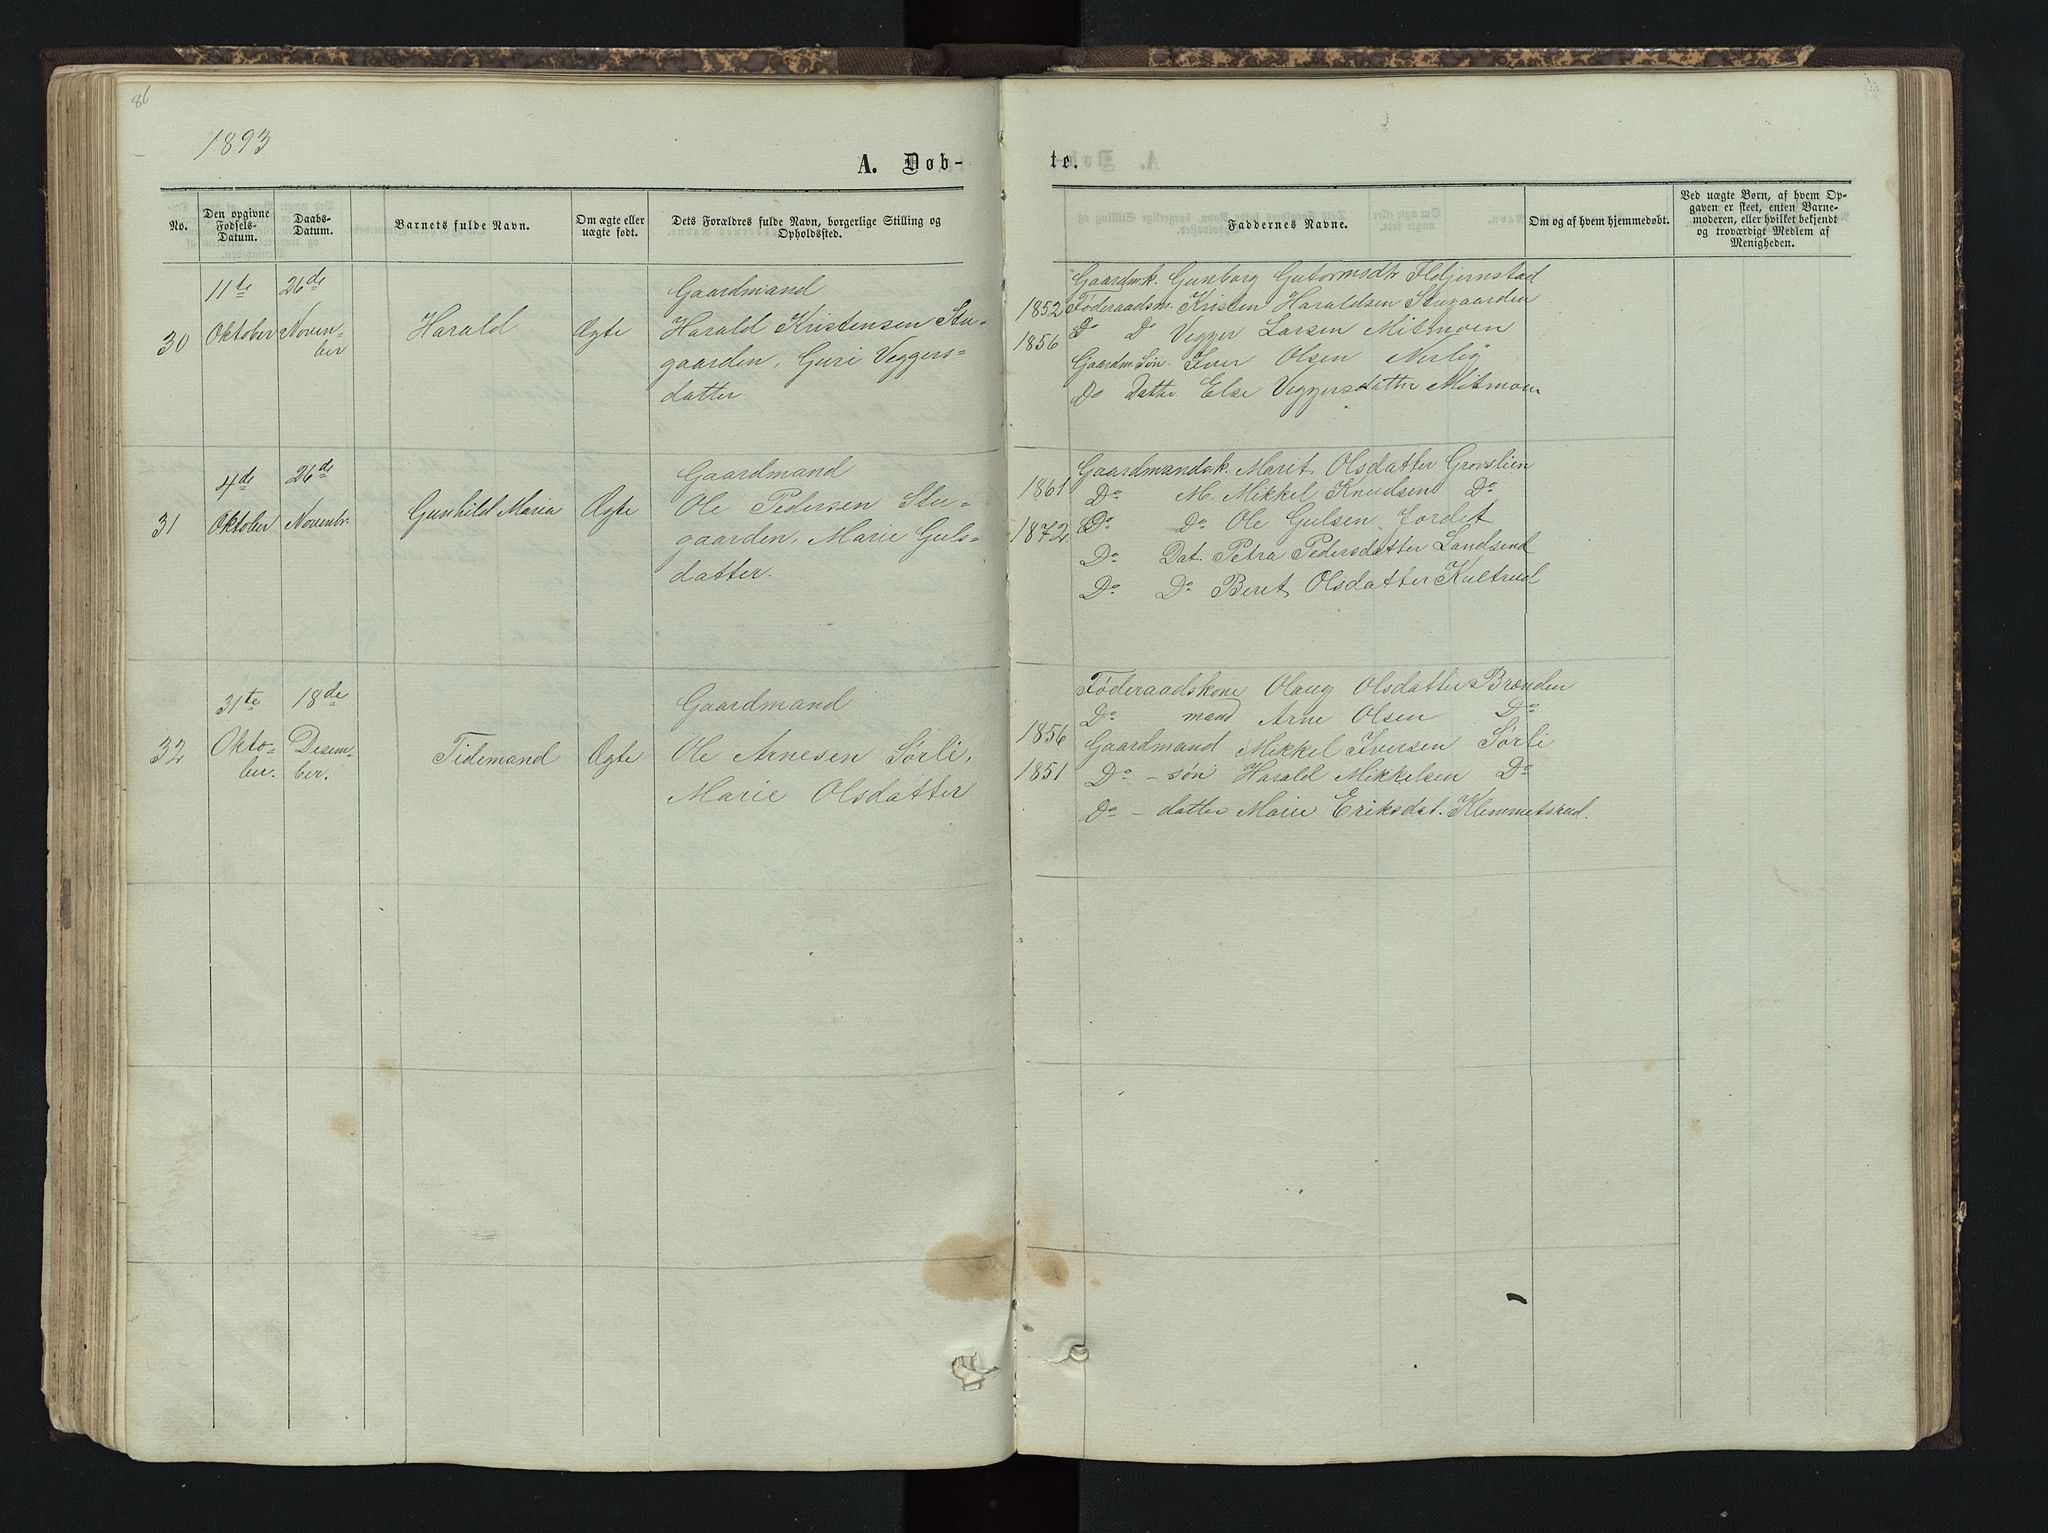 86
1893
A. Døb-
te.
No.
Den opgivne
Fødsels-
Datum.
Daabs-
Datum.
Barnets fulde Navn.
Om ægte eller
uægte født.
Dets Forældres fulde Navn, borgerlige Stilling og
Opholdssted.
Faddernes Navne.
Om og af hvem hjemmedøbt.
Ved uægte Børn, af hvem Op-
gaven er skeet, enten Barne-
moderen, eller hvilket bekjendt
og troværdigt Medlem af
Menigheden.
30
11te
Oktober
26de
Noven-
ber
Harald
Ægte
Gaardmand
Harald Kristensen Stu-
gaarden, Guri Veggers-
datter
1852
1856
Gaardmk. Gunborg Gutormsdtr
Føderaadsm. Kristen Haraldsen Stugaarden
Do Do Vegger Larsen Mitmoen
Gaardm. Søn. Iver Olsen
Do Datter Else Veggersdatter Mitmoen
31
4de
Oktober
26de
Novembr.
Gunhild Maria
Ægte
Gaardmand
Ole Pedersen Stu-
gaarden, Marie Guls-
datter.
1861
1872
Gaardmandsk. Marit Olsdatter Grovslien
Do M. Mikkel Knudsen Do
Do Do Ole Gulsen Jordet
Do Dat. Petra Pedersdatter Landsend
Do Do Beret Olsdatter Kultrud
32
31te
Okto-
ber.
18de
Desem-
ber.
Tidemand
Ægte
Gaardmand
Ole Arnesen Sørli,
Marie Olsdatter
1856
1851
Føderaadskone Olaug Olsdatter Brænden
Do mand Arne Olsen Do
Gaardmand Mikkel Iversen Sørli
Do - søn Harald Mikkelsen Do
Do - datter Marie Eriksdat. Klemmetsrud.